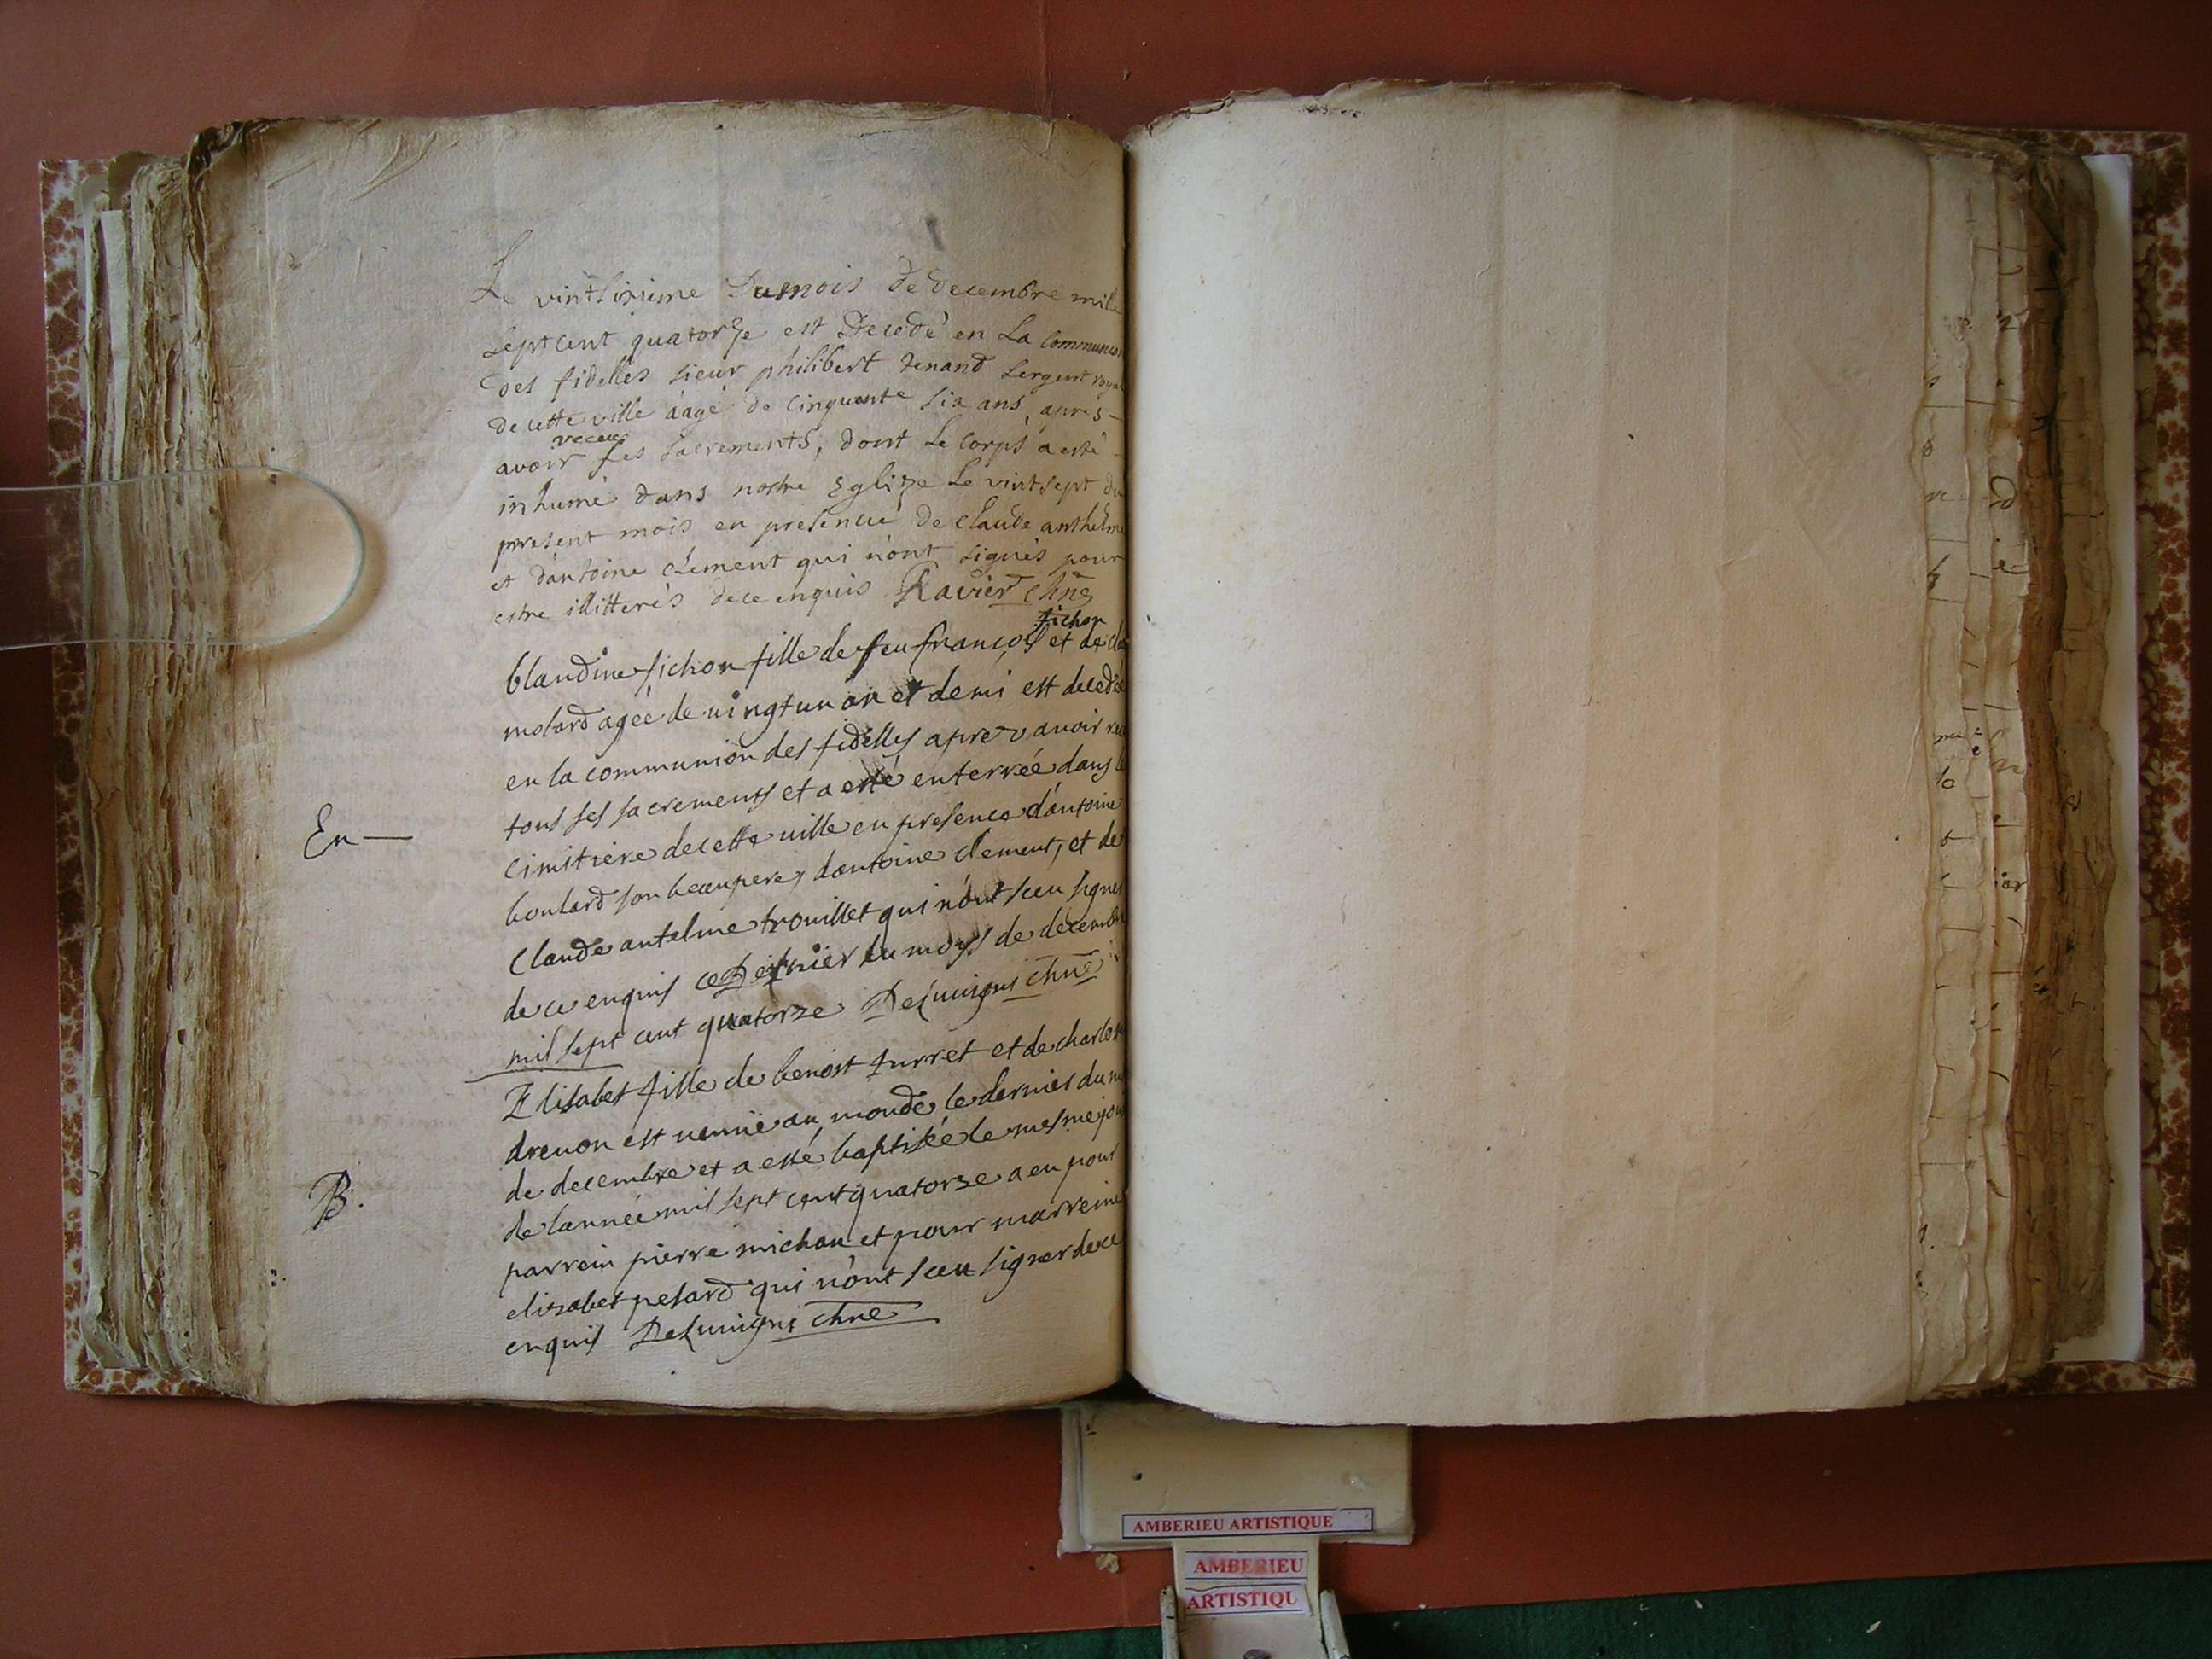 Le vintsixieme Dumois de decembre mille
sept cent quatorze est Decedé en La Communion
des fidelles sieur philibert tenand sergent royal
de cette ville aagé de cinquante six ans, apres
avoir receu ses sacrements, dont Le corps a esté
inhumé dans nostre Eglize Le vintsept du
present mois en presence de claude anthelme
et d'antoine clement qui n'ont signés pour
estre illitterés de ce enquis Ravier chne
blandine fichon fille de feu françois fichon et de
molard agée de vingt un an et demi est decedée
en la communion des fidelles apres avoir
tous ses sacrements et a esté enterrée dans le
cimitiere de cette ville en presence d'antoine
boulard son beaupere, dantoine clement, et de
Claude antelme trouillet qui n'ont sceu signer
de ce enquis ce Dernier du moys de decembre
mil sept cent quatorze chne
En
Elisabet fille de benoist furret et de charlotte
drevon est venüe au monde le dernier du
de decembre et a esté baptisée le mesme jour
de lannée mil sept cent quatorse a eu pour
parrein pierre michon et pour marreine
elizabet pesard qui n'ont sceu signer de ce
enquis chne
B.
AMBERIEU ARTISTIQUE
AMBERIEU
ARTISTIQU